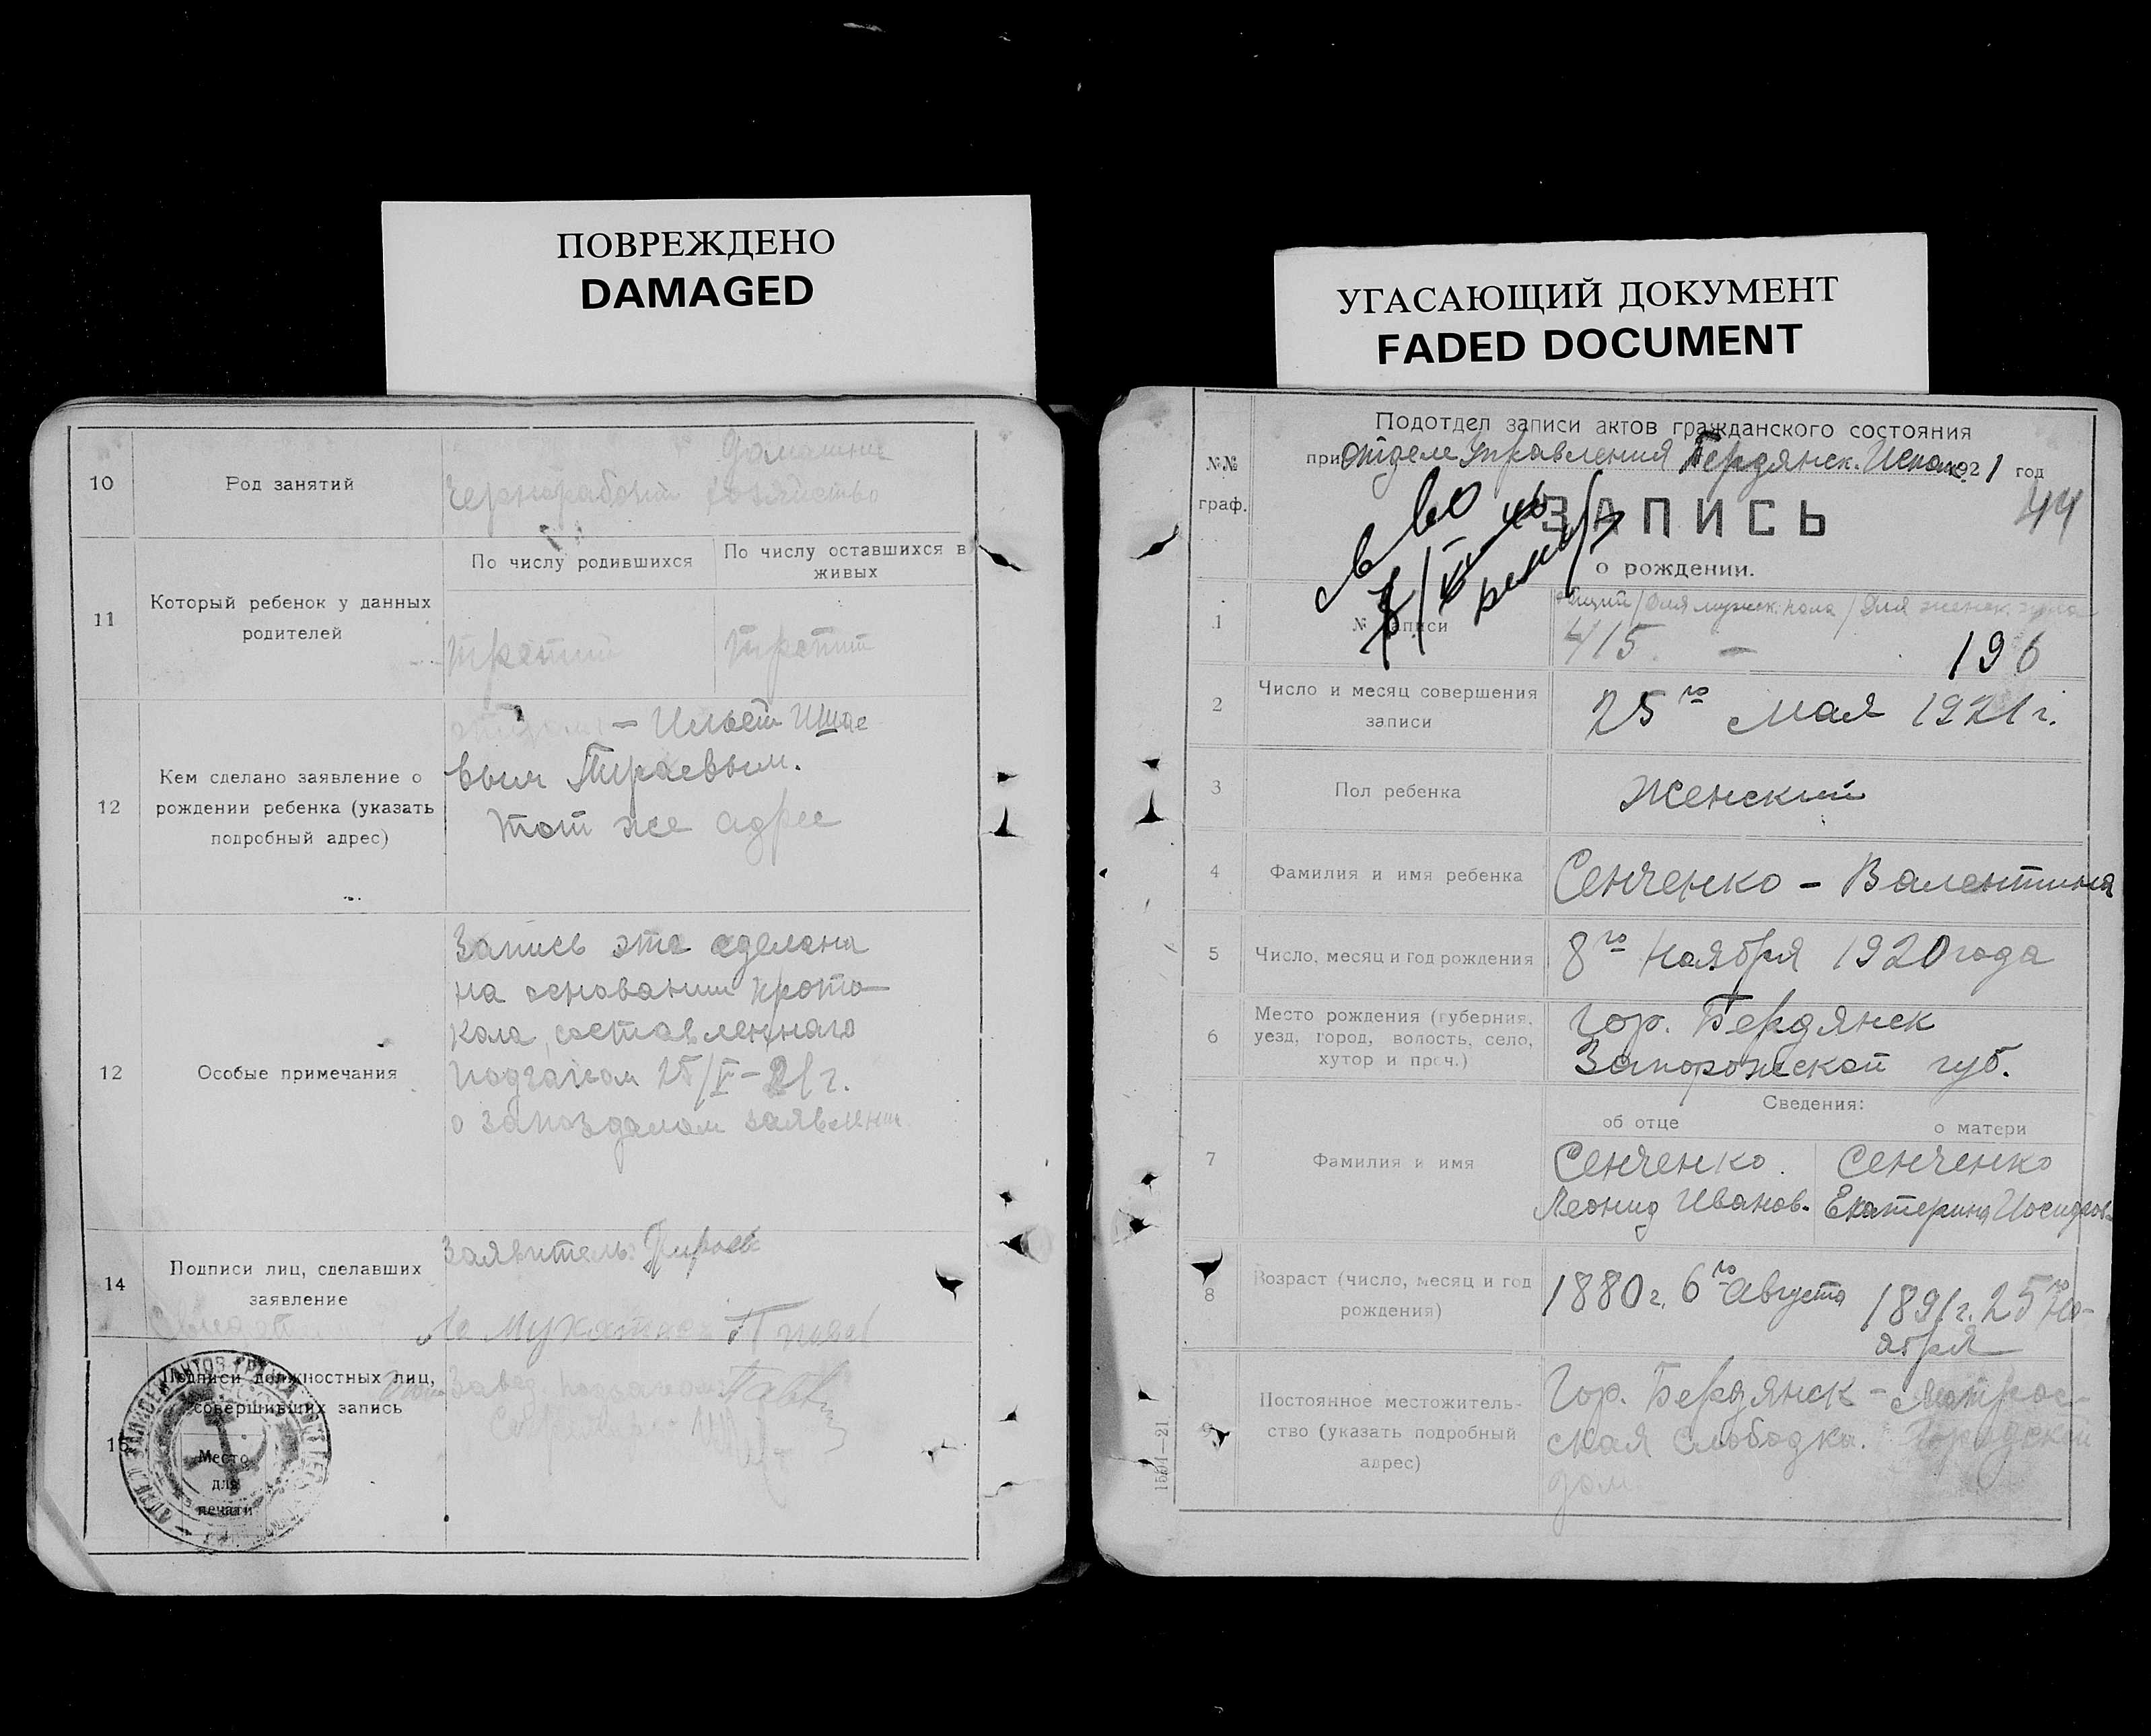 ПОВРЕЖДЕНО
DAMAGED
10
Род занятий
домашнее
чернорабочий хозяйство
11
Который ребенок у данных
родителей
По числу родившихся
По числу оставшихся в
живых
третий
третий
12
Кем сделано заявление о
рождении ребенка (указать
подробный адрес)
отцом -
вым Тираевым.
тот же адрес
12
Особые примечания
Запись эта сделана
на основании прото-
кола, составленнаго
Подзагсом 25/V-21 г.
о запоздалом заявлении.
14
Подписи лиц, сделавших
заявление
Заявитель:
15
Подписи должностных лиц,
совершивших запись
Место
для
печати
УГАСАЮЩИЙ ДОКУМЕНТ
FADED DOCUMENT
№№
граф.
Подотдел записи актов гражданского состояния
при Отделе Управления Бердянск. Исполк. 1921 год
ЗАПИСЬ
44
о рождении.
1
№ записи
общий / для мужск. пола / для женск. пола
415 - 196
2
Число и месяц совершения
записи
25го Мая 1921 г.
3
Пол ребенка
Женский
4
Фамилия и имя ребенка
Сенченко - Валентина
5
Число, месяц и год рождения
8го Ноября 1920 года
6
Место рождения (губерния,
уезд, город, волость, село,
хутор и проч.)
Гор. Бердянск
Запорожской губ.
Сведения:
об отце
о матери
7
Фамилия и имя
Сенченко.
Леонид Иванов.
Сенченко
Екатерина
8
Возраст (число, месяц и год
рождения)
1880 г. 6го Августа
1891 г. 25го Но-
ября
9
Постоянное местожитель-
ство (указать подробный
адрес)
Гор. Бердянск - Матрос-
ская слободка. Городской
дом
1501—21